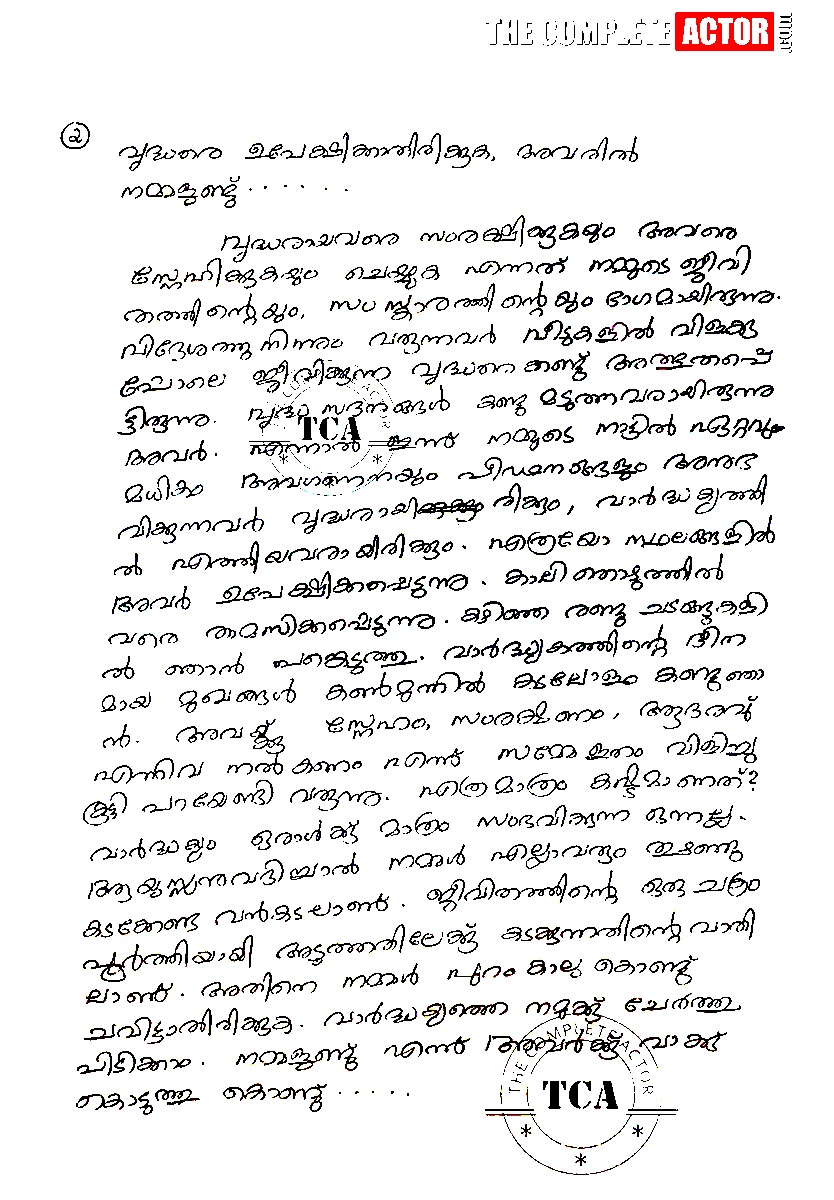 THE COMPLETE ACTOR
②
വൃദ്ധരെ ഉപേക്ഷിക്കാതിരിക്കുക, അവരിൽ
നമ്മളുണ്ട് . . . . . .
വൃദ്ധരായവരെ സംരക്ഷിക്കുകയും അവരെ
സ്നേഹിക്കുകയും ചെയ്യുക എന്നത് നമ്മുടെ ജീവി
തത്തിന്റെയും, സംസ്കാരത്തിന്റെയും ഭാഗമായിരുന്നു.
വിദേശത്തുനിന്നും വരുന്നവർ വീടുകളിൽ വിളക്കു
പോലെ ജീവിക്കുന്ന വൃദ്ധരെ കണ്ട് അത്ഭുതപ്പെ
ട്ടിരുന്നു. വൃദ്ധ സദനങ്ങൾ കണ്ടു മടുത്തവരായിരുന്നു
അവർ. എന്നാൽ ഇന്ന് നമ്മുടെ നാട്ടിൽ ഏറ്റവും
മധികം അവഗണനയും പീഡനങ്ങളും അനുഭ
വിക്കുന്നവർ വൃദ്ധരായിരിക്കും, വാർദ്ധക്യത്തി
ൽ എത്തിയവരായിരിക്കും. എത്രയോ സ്ഥലങ്ങളിൽ
അവർ ഉപേക്ഷിക്കപ്പെടുന്നു. കാലിത്തൊഴുത്തിൽ
വരെ താമസിക്കപ്പെടുന്നു. കഴിഞ്ഞ രണ്ടു ചടങ്ങുകളി
ൽ ഞാൻ പങ്കെടുത്തു. വാർദ്ധക്യത്തിന്റെ ദീന
മായ മുഖങ്ങൾ കൺമുന്നിൽ കടലോളം കണ്ടുഞാ
ൻ. അവർക്കു സ്നേഹം, സംരക്ഷണം, ആദരവ്
എന്നിവ നൽകണം എന്ന് സമ്മേളനം വിളിച്ചു
കൂട്ടി പറയേണ്ടി വരുന്നു. എത്രമാത്രം കഷ്ടമാണത്?
വാർദ്ധക്യം ഒരാൾക്ക് മാത്രം സംഭവിക്കുന്ന ഒന്നല്ല.
ആയുസ്സനുവദിച്ചാൽ നമ്മൾ എല്ലാവരും തുഴഞ്ഞു
കടക്കേണ്ട വൻകടലാണ്. ജീവിതത്തിന്റെ ഒരു ചക്രം
പൂർത്തിയായി അടുത്തതിലേക്ക് കടക്കുന്നതിന്റെ വാതി
ലാണ്. അതിനെ നമ്മൾ പുറംകാലു കൊണ്ട്
ചവിട്ടാതിരിക്കുക. വാർദ്ധക്യത്തെ നമുക്ക് ചേർത്തു
പിടിക്കാം. നമ്മളുണ്ടു എന്ന് അവർക്ക് വാക്ക്
കൊടുത്തു കൊണ്ട് . . . . .
THE COMPLETE ACTOR
TCA